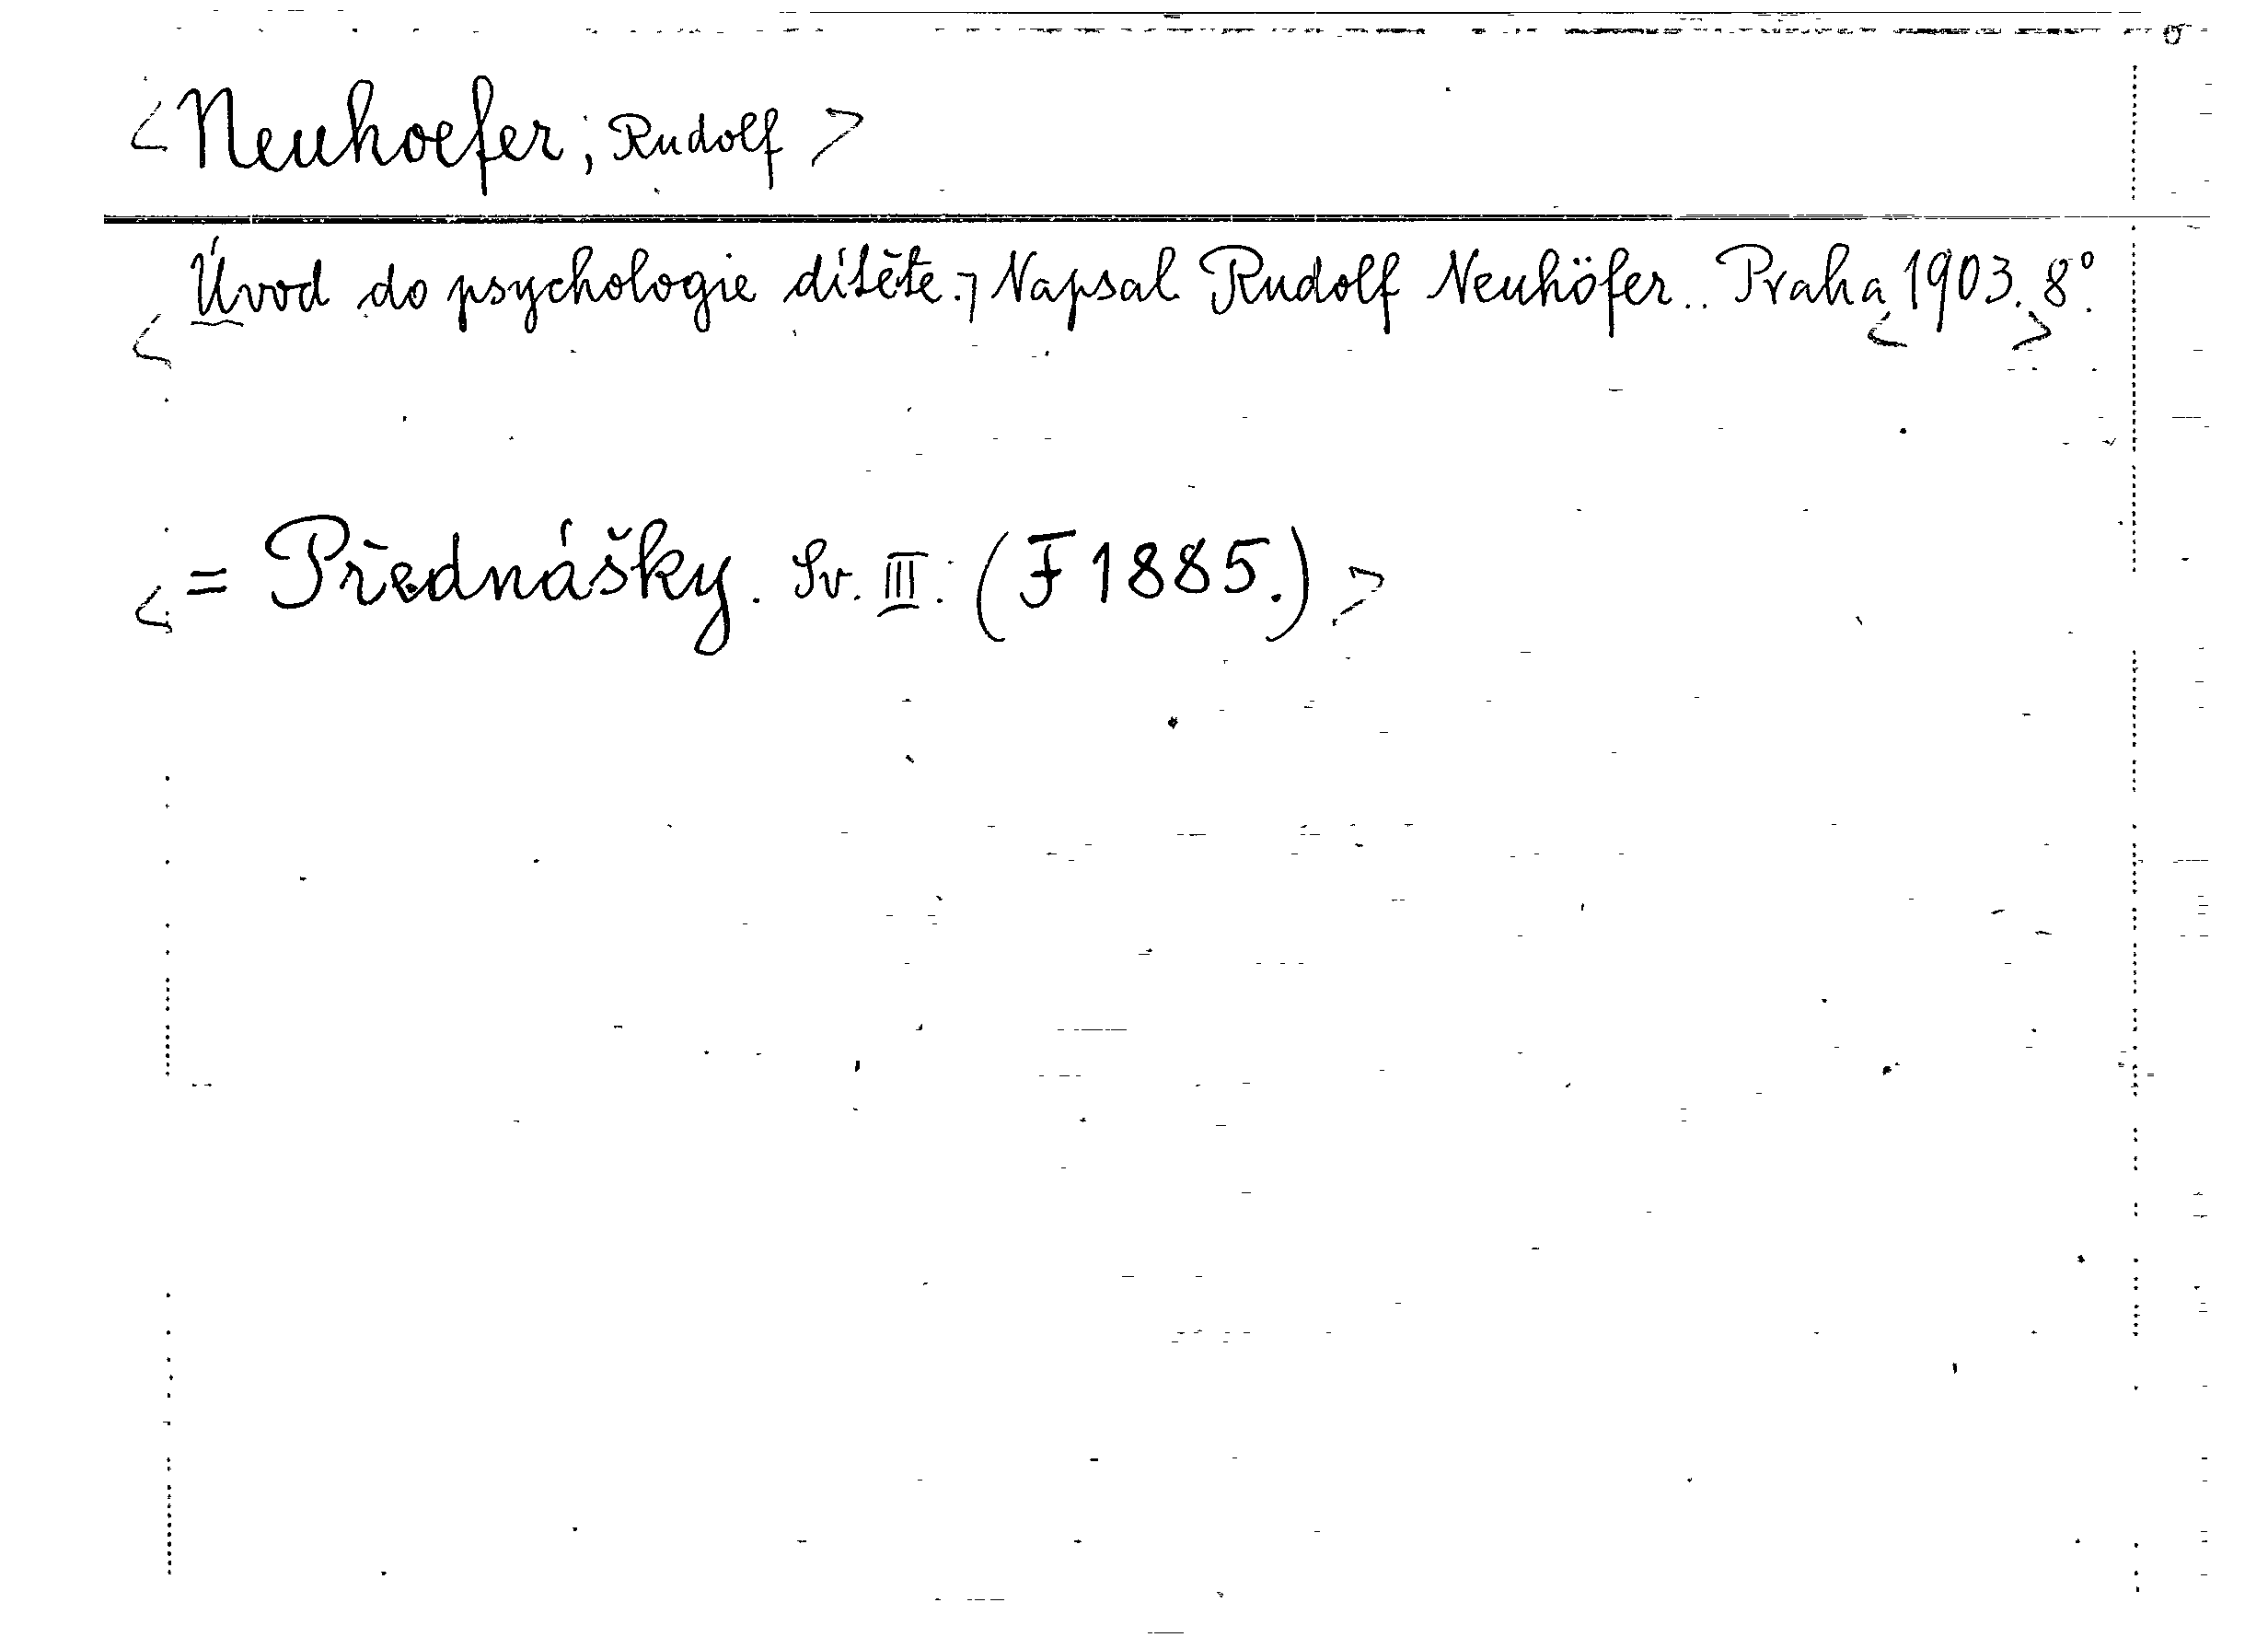 <Neuhoefer; Rudolf>
Úvod do psychologie dítěte.¬ Napsal Rudolf Neuhöfer.. Praha <1903.> 8°.
<= Přednášky. Sv. III. (F 1885.)>